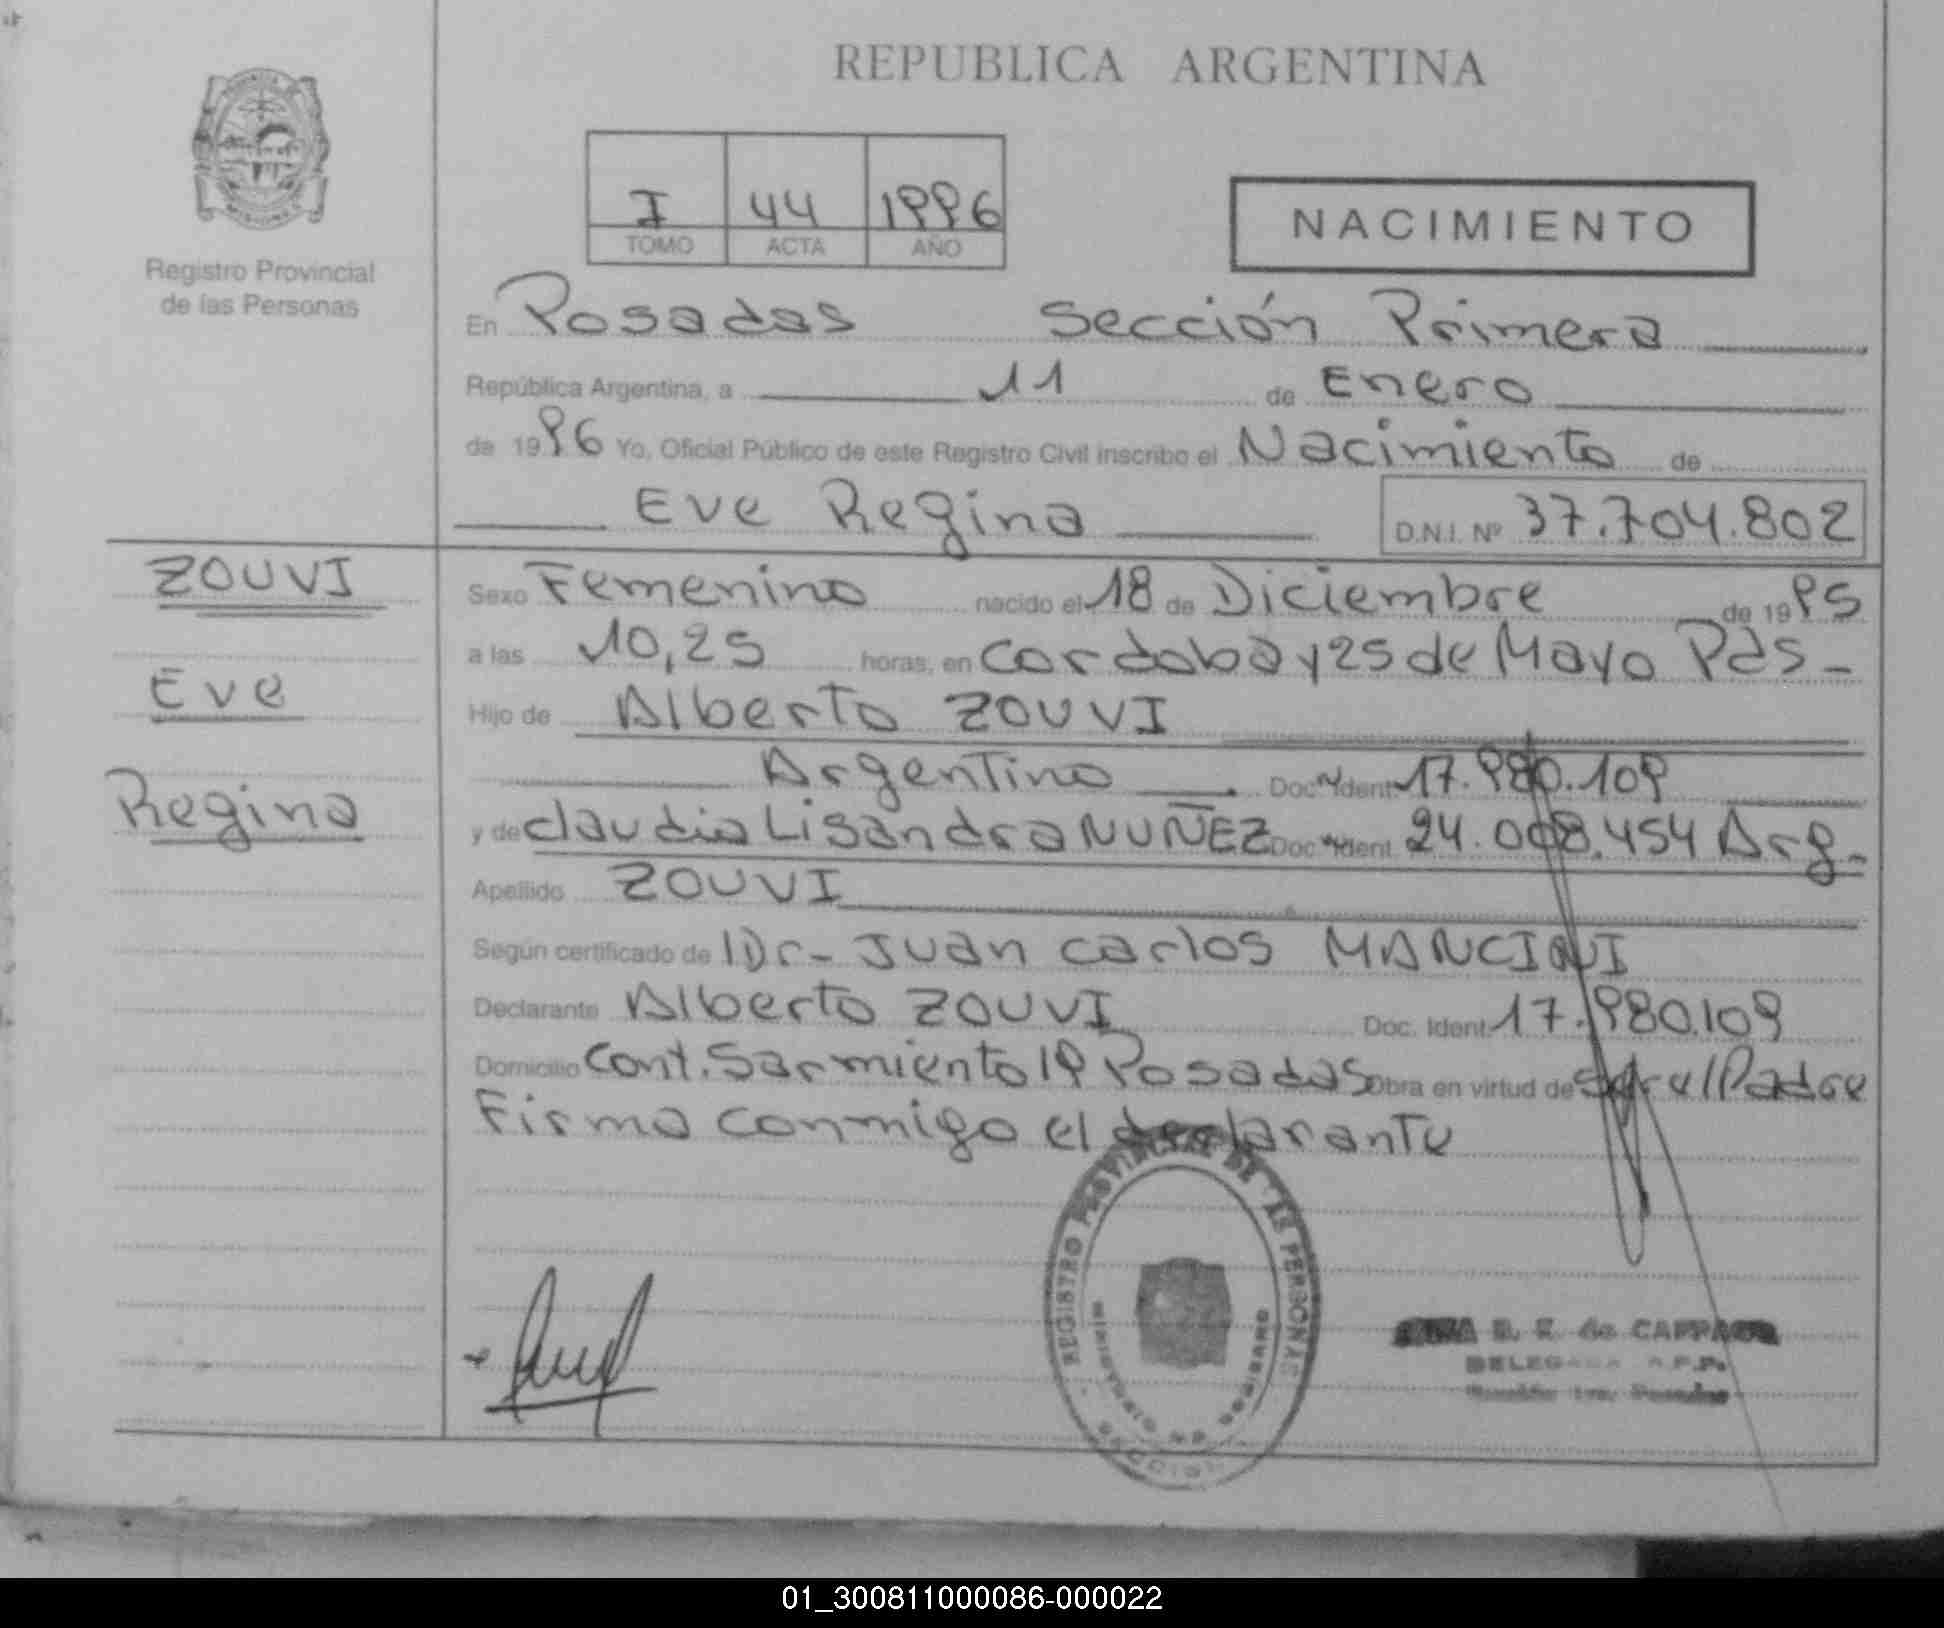 REPUBLICA ARGENTINA
I 44 1996
TOMO ACTA AÑO
NACIMIENTO
Registro Provincial
de las Personas
En Posadas Sección Primera
República Argentina, a 11 de Enero
de 1996 Yo, Oficial Público de este Registro Civil inscribo el Nacimiento de
Eve Regina D.N.I. Nº 37.704.802
ZOUVI
Eve
Regina
Sexo Femenino nacido el 18 de Diciembre de 1995
a las 10,25 horas, en Cordoba y 25 de Mayo Pdas-
Hijo de Alberto ZOUVI
Argentino Doc. Ident. 17.980.109
y de Claudia Lisandra NUÑEZ Doc. Ident. 24.008.454 Arg-
Apellido ZOUVI
Según certificado de Dr- Juan Carlos MANCINI
Declarante Alberto ZOUVI Doc. Ident. 17.980.109
Domicilio Cont. Sarmiento 19 Posadas Obra en virtud de el Padre
Firma conmigo el declarante
REGISTRO PROVINCIAL DE LAS PERSONAS
MINISTERIO DE GOBIERNO
MISIONES
de
DELEGADA R.P.P.
Sección 1ra. Posadas
01_300811000086-000022